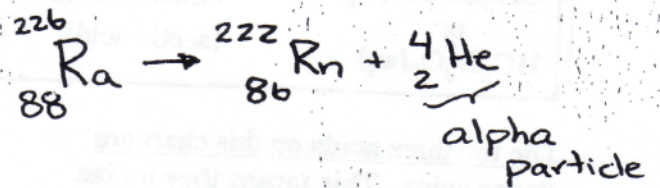 ²²⁶₈₈Ra → ²²²₈₆Rn + ⁴₂He
alpha
particle